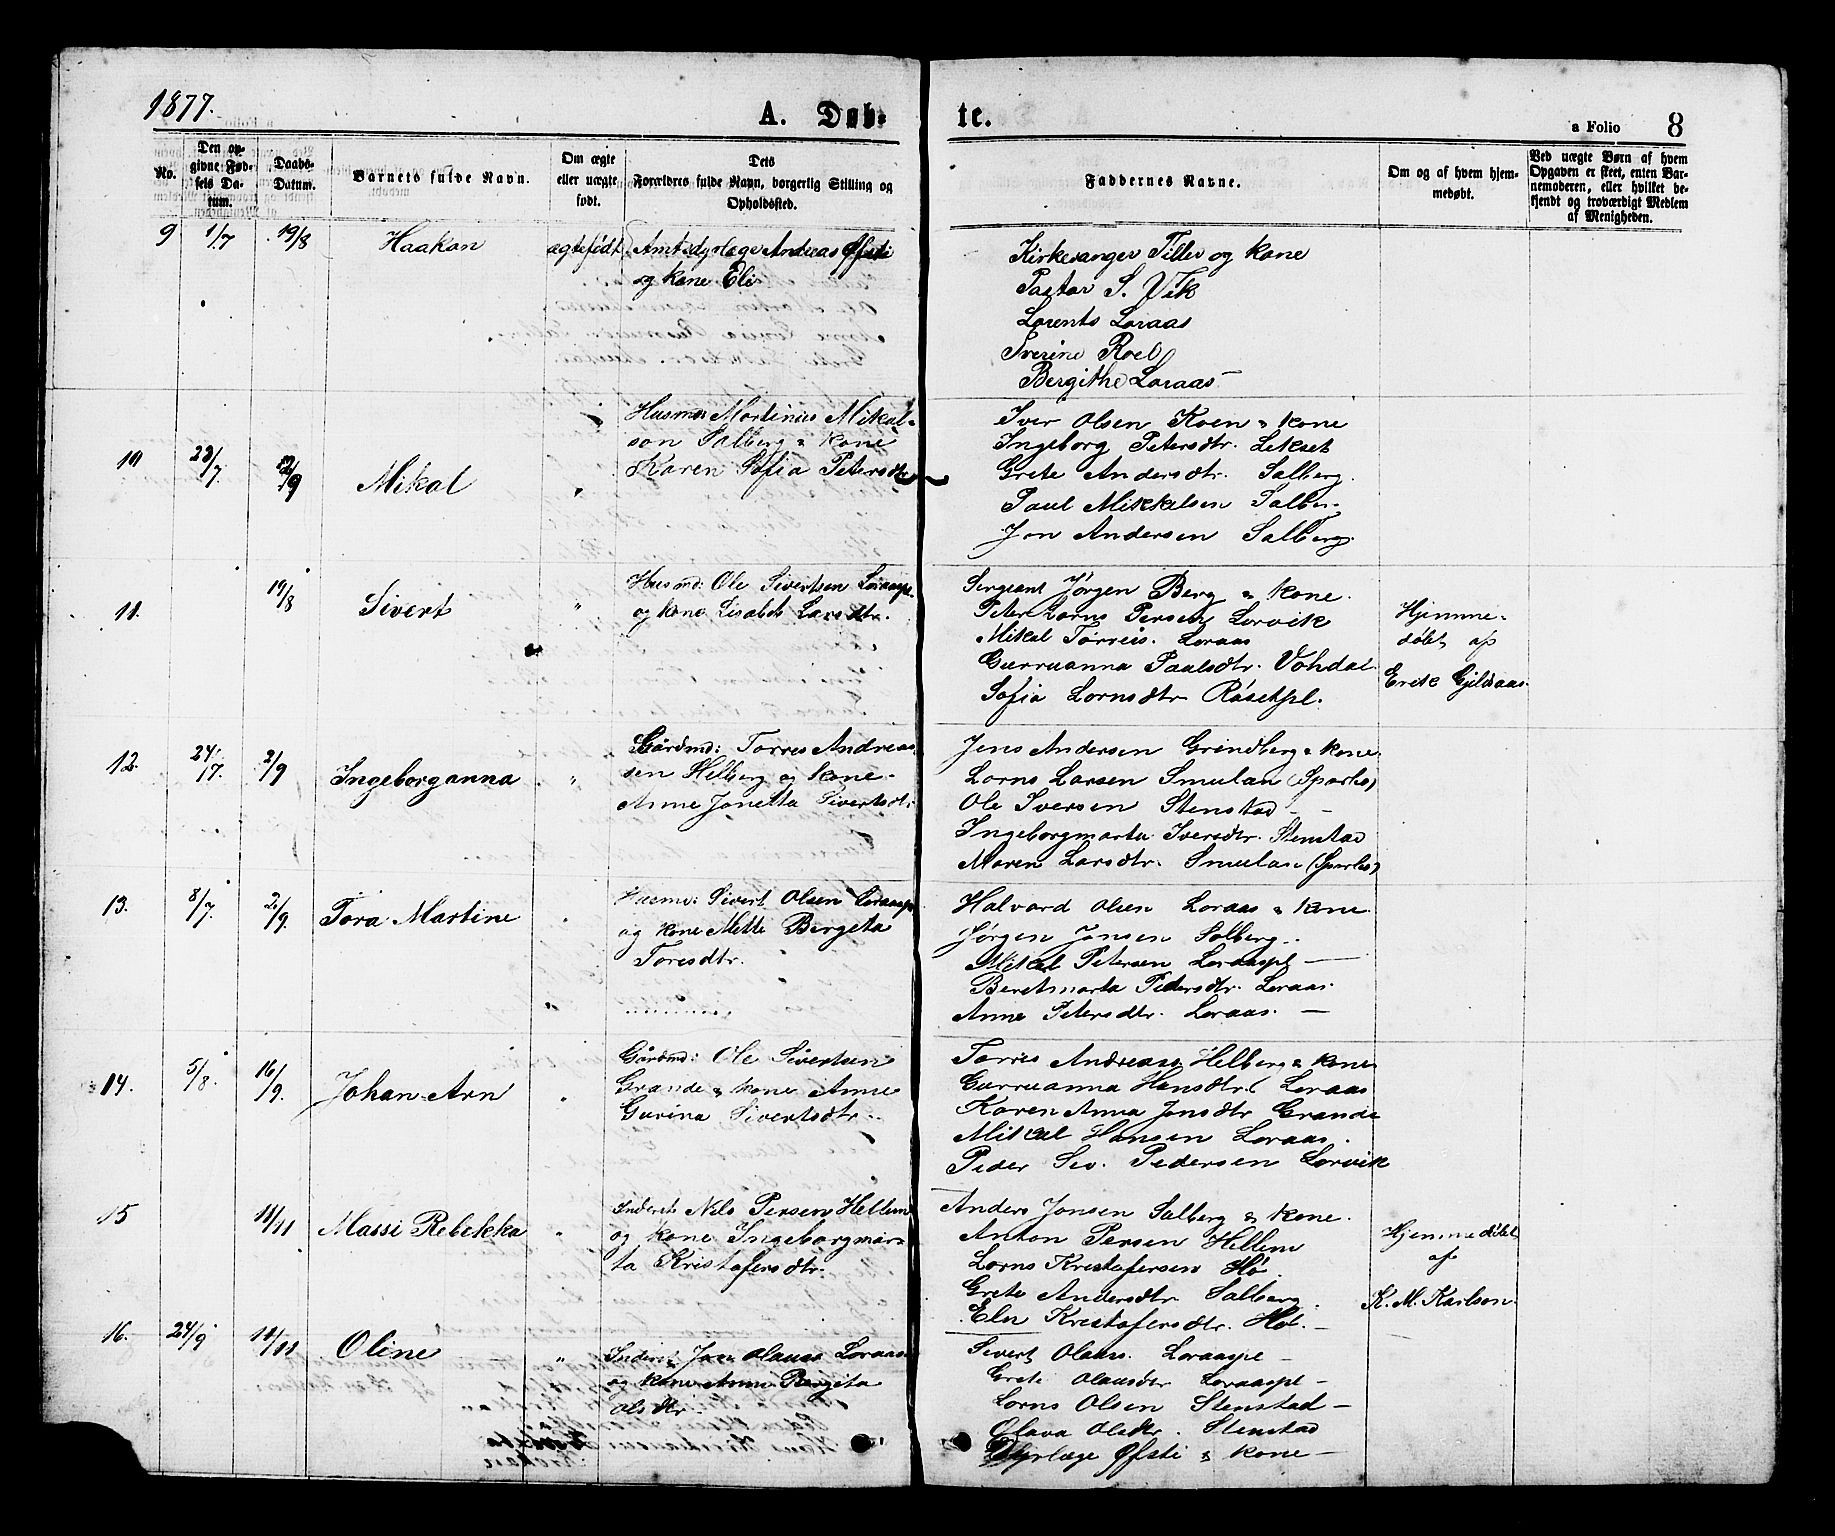 1877.
A. Døb-
te.
a Folio 8
No.
Den op-
givne Fød-
sels Da-
tum.
Daabs-
Datum.
Barnets fulde Navn.
Om ægte
eller uægte
født.
Dets
Forældres fulde Navn, borgerlig Stilling og
Opholdssted.
Faddernes Navne.
Om og af hvem hjem-
medøbt.
Ved uægte Børn af hvem
Opgaven er skeet, enten Bar-
nemoderen, eller hvilket be-
kjendt og troværdigt Medlem
af Menigheden.
9 1/7 19/8 Haakon ægtefødt Amtsdyrlæge Andreas Øfsti
og kone Eli
Kirkesanger Tiller og kone
Pastor S. Vik
Lorents Loraas
Iverine Roel
Bergithe Loraas
10 23/7 /9 Mikal "
Husmd: Martinus Mikal-
son Salberg & kone
Karen Sofia Petersdtr
Iver Olsen Koen & kone
Ingeborg Petersdtr. Lekset
Grete Andersdtr. Salberg.
Paul Mikkelsen Salber.
Jon Andersen Salberg.
11. 19/8 Sivert "
Husmd: Ole Sivertsen Loraaspl.
og kone Lisabet Larsdtr.
Sergeant Jørgen Berg & kone.
Peter Lorns Persen Lorvik
Mikal Torreis. Loraas
Gurruanna Paalsdtr. Vohdal
Sofia Lornsdtr Røsetpl.
Hjemme-
døbt af
Erik Gjilsaas.
12. 24/7. 2/9 Ingeborganna "
Gårdmd: Torres Andreas-
sen Helberg og kone
Anne Jonetta Sivertsdtr
Jens Andersen Grindberg & kone.
Lorns Larsen Smulan (Sparbo)
Ole Iversen Stenstad
Ingeborgmarta Iversdtr. Stenstad
Maren Larsdtr. Smulan (Sparbo)
13. 8/7. 2/9. Tora Martine "
Husmd: Sivert Olsen Loraaspl
og kone Mette Bergeta
Toresdtr.
Halvard Olsen Loraas & kone.
Jørgen Jonsen Salberg.
Mikal Petersen Loraaspl
Beretmarta Pedersdtr. Loraas.
Anne Petersdtr. Loraas.
14. 5/8. 16/9. Johan Arn "
Gårdmd: Ole Sivertsen
Grande & kone Anne
Gurina Sivertsdtr.
Torris Andreass. Helberg & kone
Gurruanna Hansdtr. Loraas
Karen Anna Jonsdtr Grande
Mikal Hansen Loraas.
Peder Siv. Pedersen Lorvik
15 11/11 Massi Rebekka "
Inderst Nils Persen Hellem
og kone Ingeborgmar-
ta Kristofersdtr.
Anders Jonsen Salberg & kone.
Anton Persen Hellem
Lorns Kristofersen Hø
Grete Andersdtr Salberg.
Elen Kristofersdtr. Hol.
Hjemmedøbt
af
K. M. Karlson.
16. 24/9 11/11 Oline "
Inderst Jon Olauss Loraas
og kone Anne Bergita
Olsdtr.
Sivert Olauss. Loraaspl
Grete Olausdtr Loraaspl
Lorns Olsen Stenstad
Olava Olsdtr. Stenstad
Dyrlæge Øfsti & kone